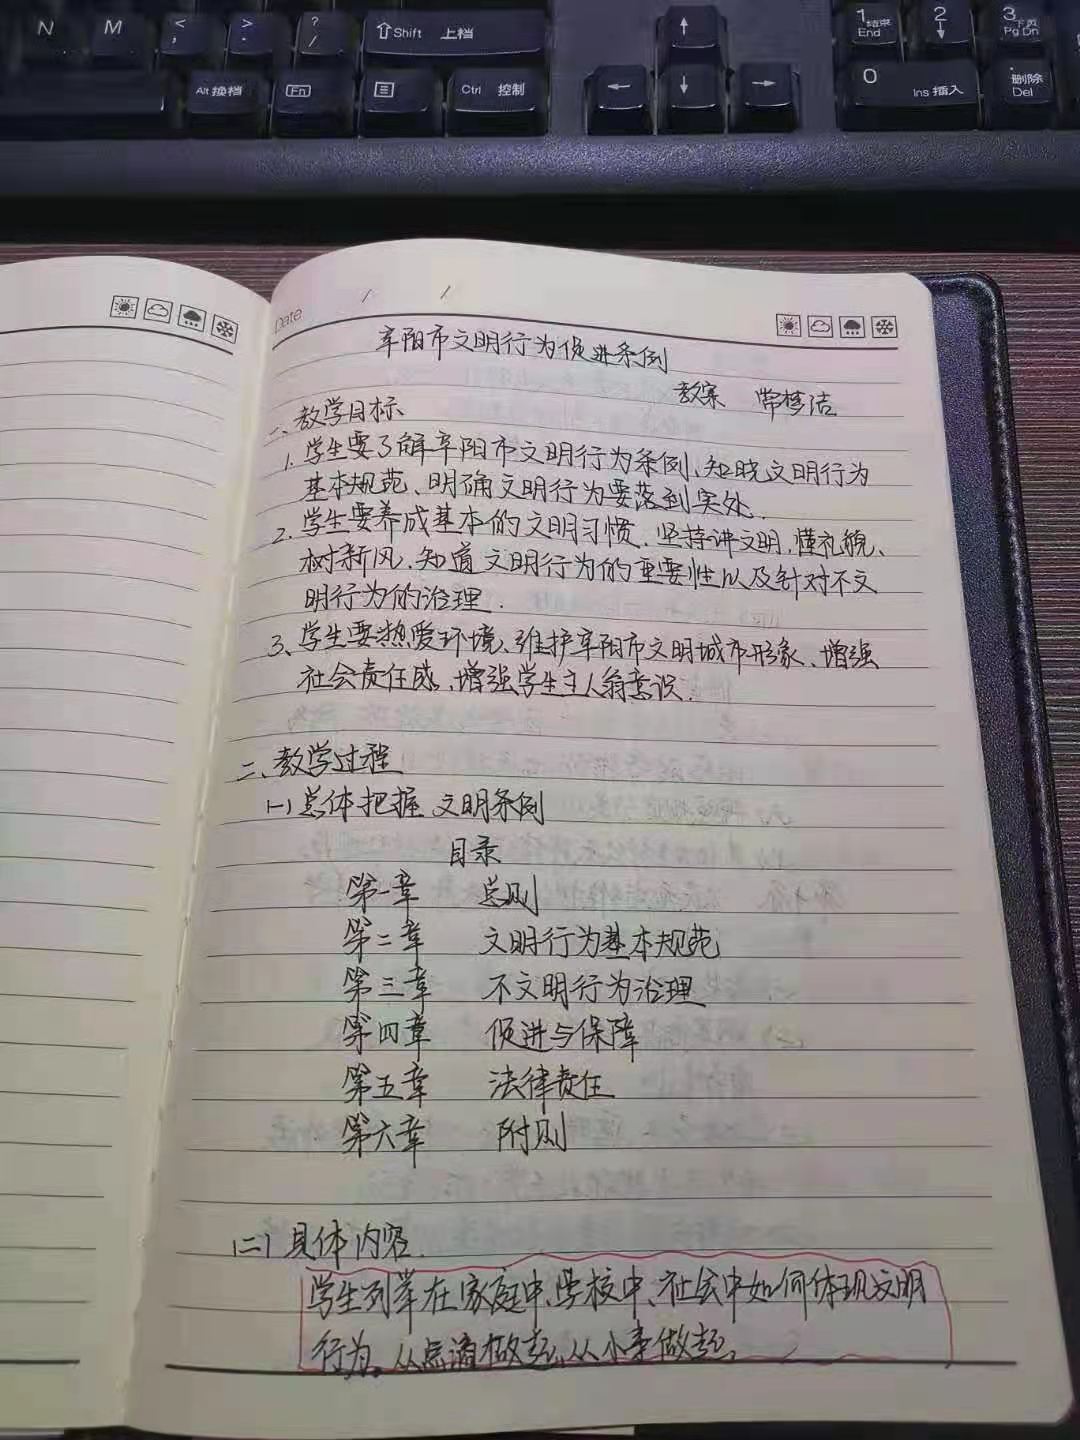 N M < , > . ? / ⇧Shift 上档 ↑ 1 结束 End 2 ↓ 3 下页 Pg Dn
Alt 换档 Fn Ctrl 控制 ← ↓ → 0 Ins 插入 . 删除 Del
Date / /
阜阳市文明行为促进条例
教案 常梦洁
一、教学目标
1. 学生要了解阜阳市文明行为条例、知晓文明行为
基本规范、明确文明行为要落到实处.
2. 学生要养成基本的文明习惯. 坚持讲文明, 懂礼貌、
树新风、知道文明行为的重要性以及针对不文
明行为的治理.
3、学生要热爱环境、维护阜阳市文明城市形象、增强
社会责任感、增强学生主人翁意识.
二、教学过程
(一) 总体把握文明条例
目录
第一章 总则
第二章 文明行为基本规范
第三章 不文明行为治理
第四章 促进与保障
第五章 法律责任
第六章 附则
(二) 具体内容.
学生列举在家庭中、学校中、社会中如何体现文明
行为。从点滴做起、从小事做起。